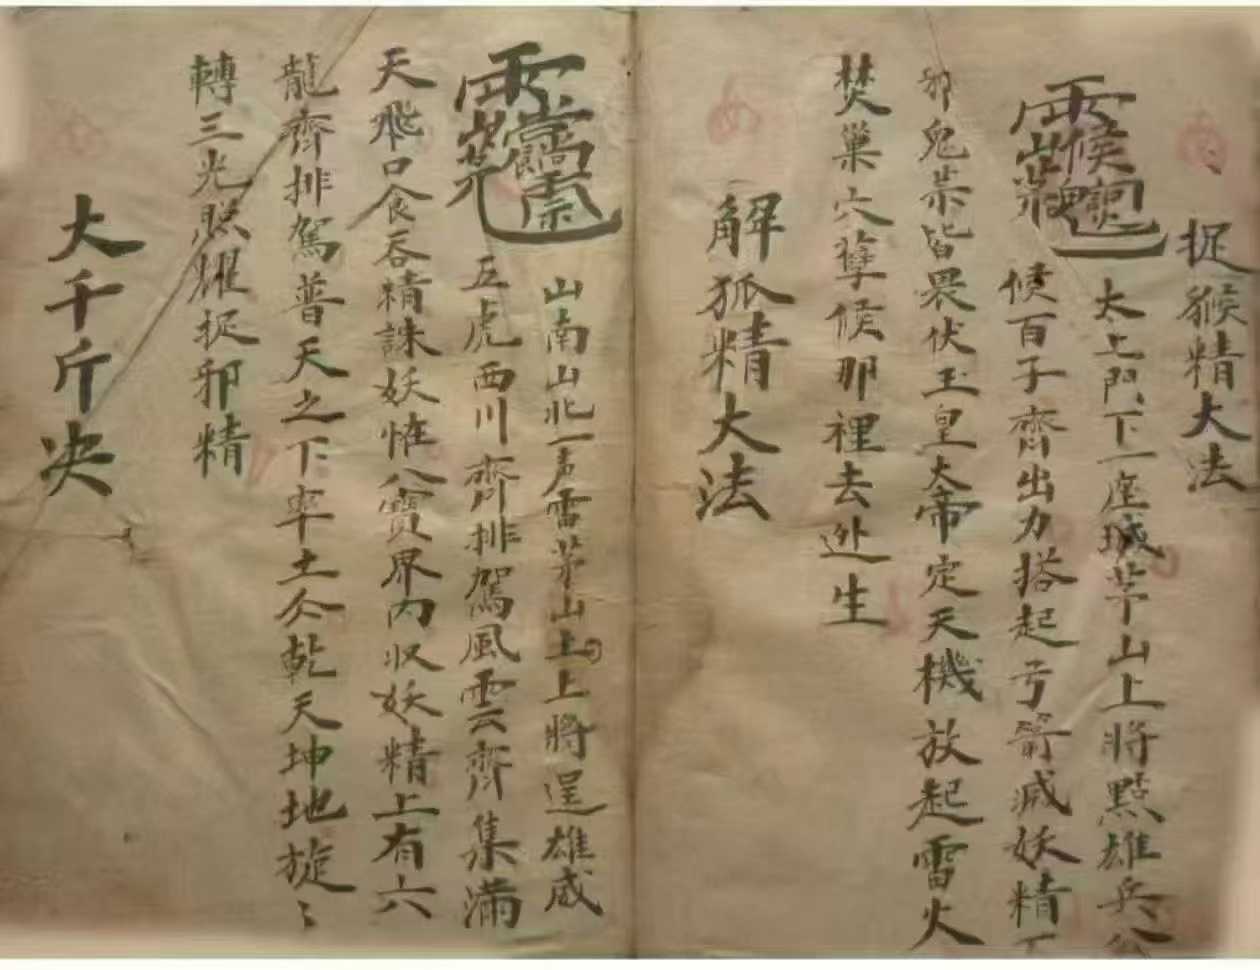 捉猴精大法
太上門下一座城茅山上將點雄兵
候百子齊出力搭起弓箭滅妖精
邪鬼祟皆畏伏玉皇大帝定天機放起雷火
焚巢穴孽候那裡去逃生
解狐精大法
山南山北一声雷茅山上上將逞雄威
五虎西川齊排駕風雲齊集滿
天飛口食吞精誅妖怪八寶界内収妖精上有六
龍齊排駕普天之下率土仌乾天坤地旋〻
轉三光照耀捉邪精
大千斤决